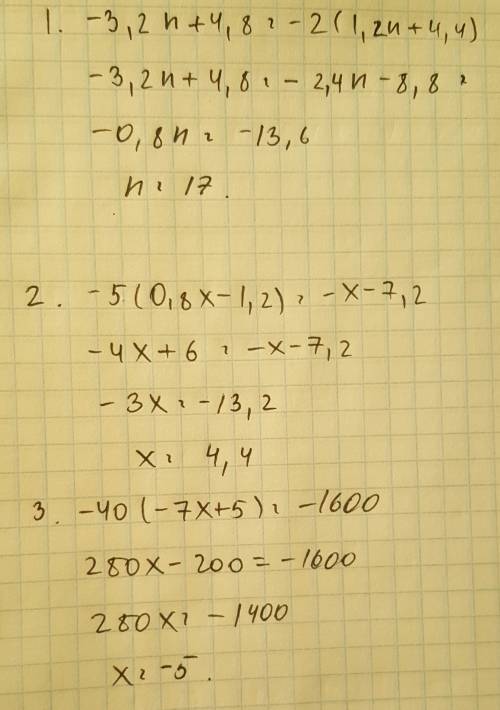 1. -3,2n+4,8=-2(1,2n+4,4)
-3,2n+4,8=-2,4n-8,8
-0,8n=-13,6
n=17.
2. -5(0,8x-1,2)=-x-7,2
-4x+6=-x-7,2
-3x=-13,2
x=4,4
3. -40(-7x+5)=-1600
280x-200=-1600
280x=-1400
x=-5.